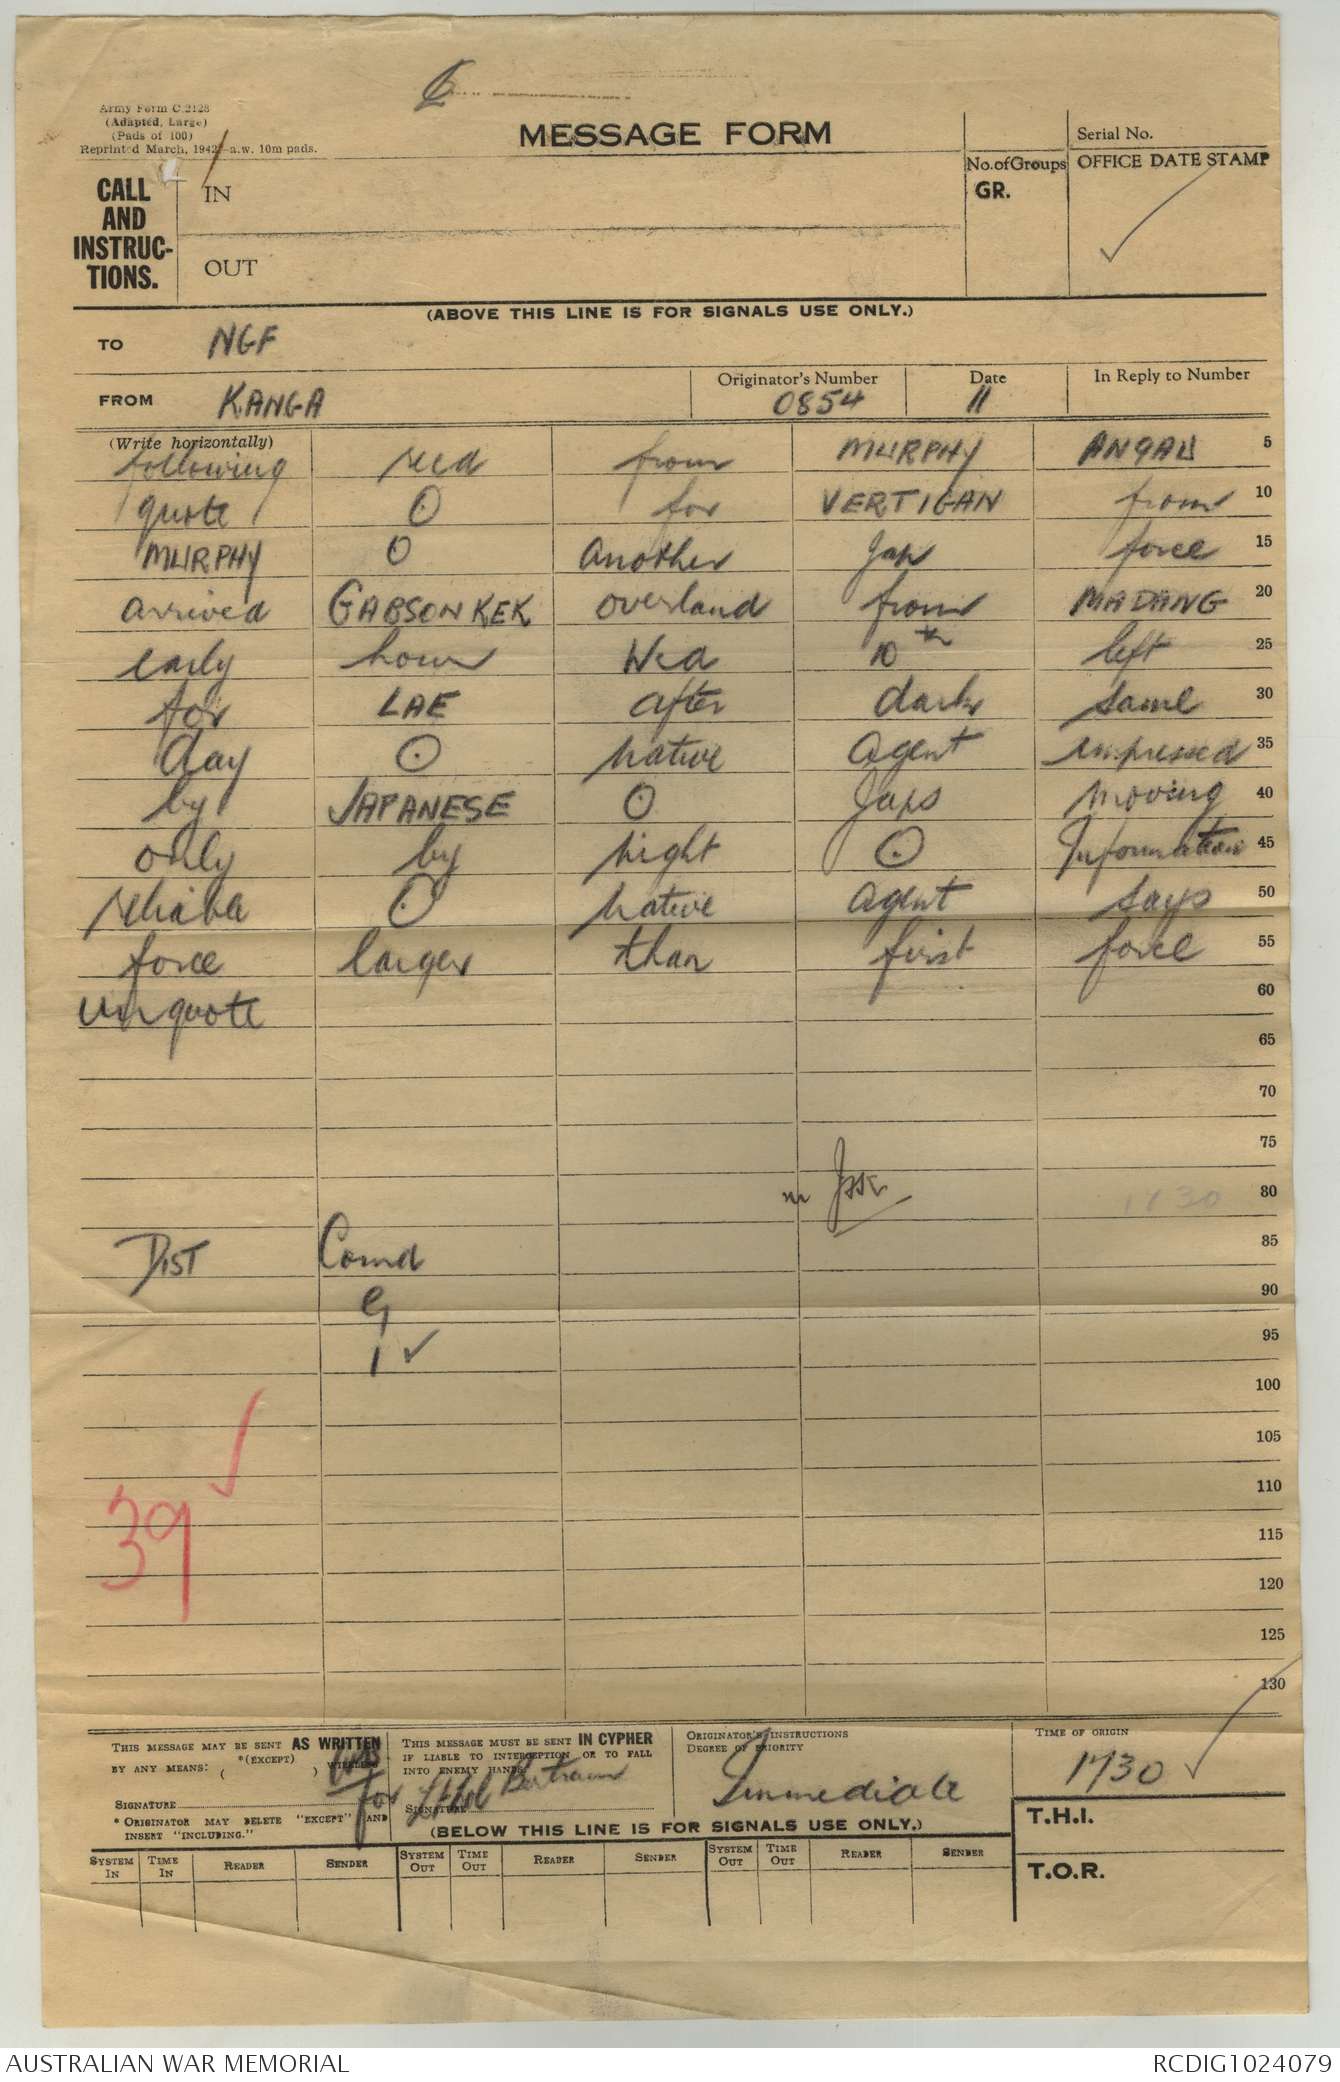 Army Form C.2128
(Adapted, Large)
(Pads of 100)
Reprinted March, 1942—a.w. 10m pads.
MESSAGE FORM
Serial No.
No.ofGroups
GR.
OFFICE DATE STAMP
CALL
AND
INSTRUC-
TIONS.
IN
OUT
(ABOVE THIS LINE IS FOR SIGNALS USE ONLY.)
TO NGF
FROM KANGA
Originator's Number
0854
Date
11
In Reply to Number
(Write horizontally)
following recd from MURPHY ANGAU 5
quote ⊙ for VERTIGAN from 10
MURPHY O Another Jap force 15
arrived GABSONKEK overland from MADANG 20
early hours Wed 10th left 25
for LAE after dark same 30
day ⊙ native agent impressed 35
by JAPANESE ⊙ Japs moving 40
only by night ⊙ Information 45
reliable ⊙ native agent says 50
force larger than first force 55
unquote 60
65
70
75
80 1730
DIST Comd 85
G 90
I ✓ 95
100
105
110
39 115
120
125
130
THIS MESSAGE MAY BE SENT AS WRITTEN
BY ANY MEANS: *(EXCEPT) ( ) WIRELESS
SIGNATURE
* ORIGINATOR MAY DELETE "EXCEPT" AND
INSERT "INCLUDING."
THIS MESSAGE MUST BE SENT IN CYPHER
IF LIABLE TO INTERCEPTION OR TO FALL
INTO ENEMY HANDS.
for Lt Col Bertram
SIGNATURE
ORIGINATOR'S INSTRUCTIONS
DEGREE OF PRIORITY
Immediate
TIME OF ORIGIN
1730
T.H.I.
T.O.R.
(BELOW THIS LINE IS FOR SIGNALS USE ONLY.)
SYSTEM IN TIME IN READER SENDER SYSTEM OUT TIME OUT READER SENDER SYSTEM OUT TIME OUT READER SENDER
AUSTRALIAN WAR MEMORIAL
RCDIG1024079